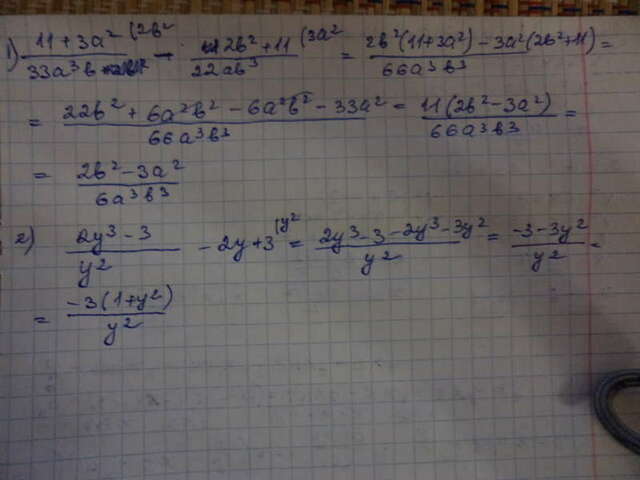 1) (11+3a²)/(33a³b) (2b² - (2b²+11)/(22ab³) (3a² = (2b²(11+3a²)-3a²(2b²+11))/(66a³b³) =
= (22b²+6a²b²-6a²b²-33a²)/(66a³b³) = (11(2b²-3a²))/(66a³b³) =
= (2b²-3a²)/(6a³b³)
2) (2y³-3)/(y²) - 2y+3 (y² = (2y³-3-2y³-3y²)/(y²) = (-3-3y²)/(y²) =
= (-3(1+y²))/(y²)